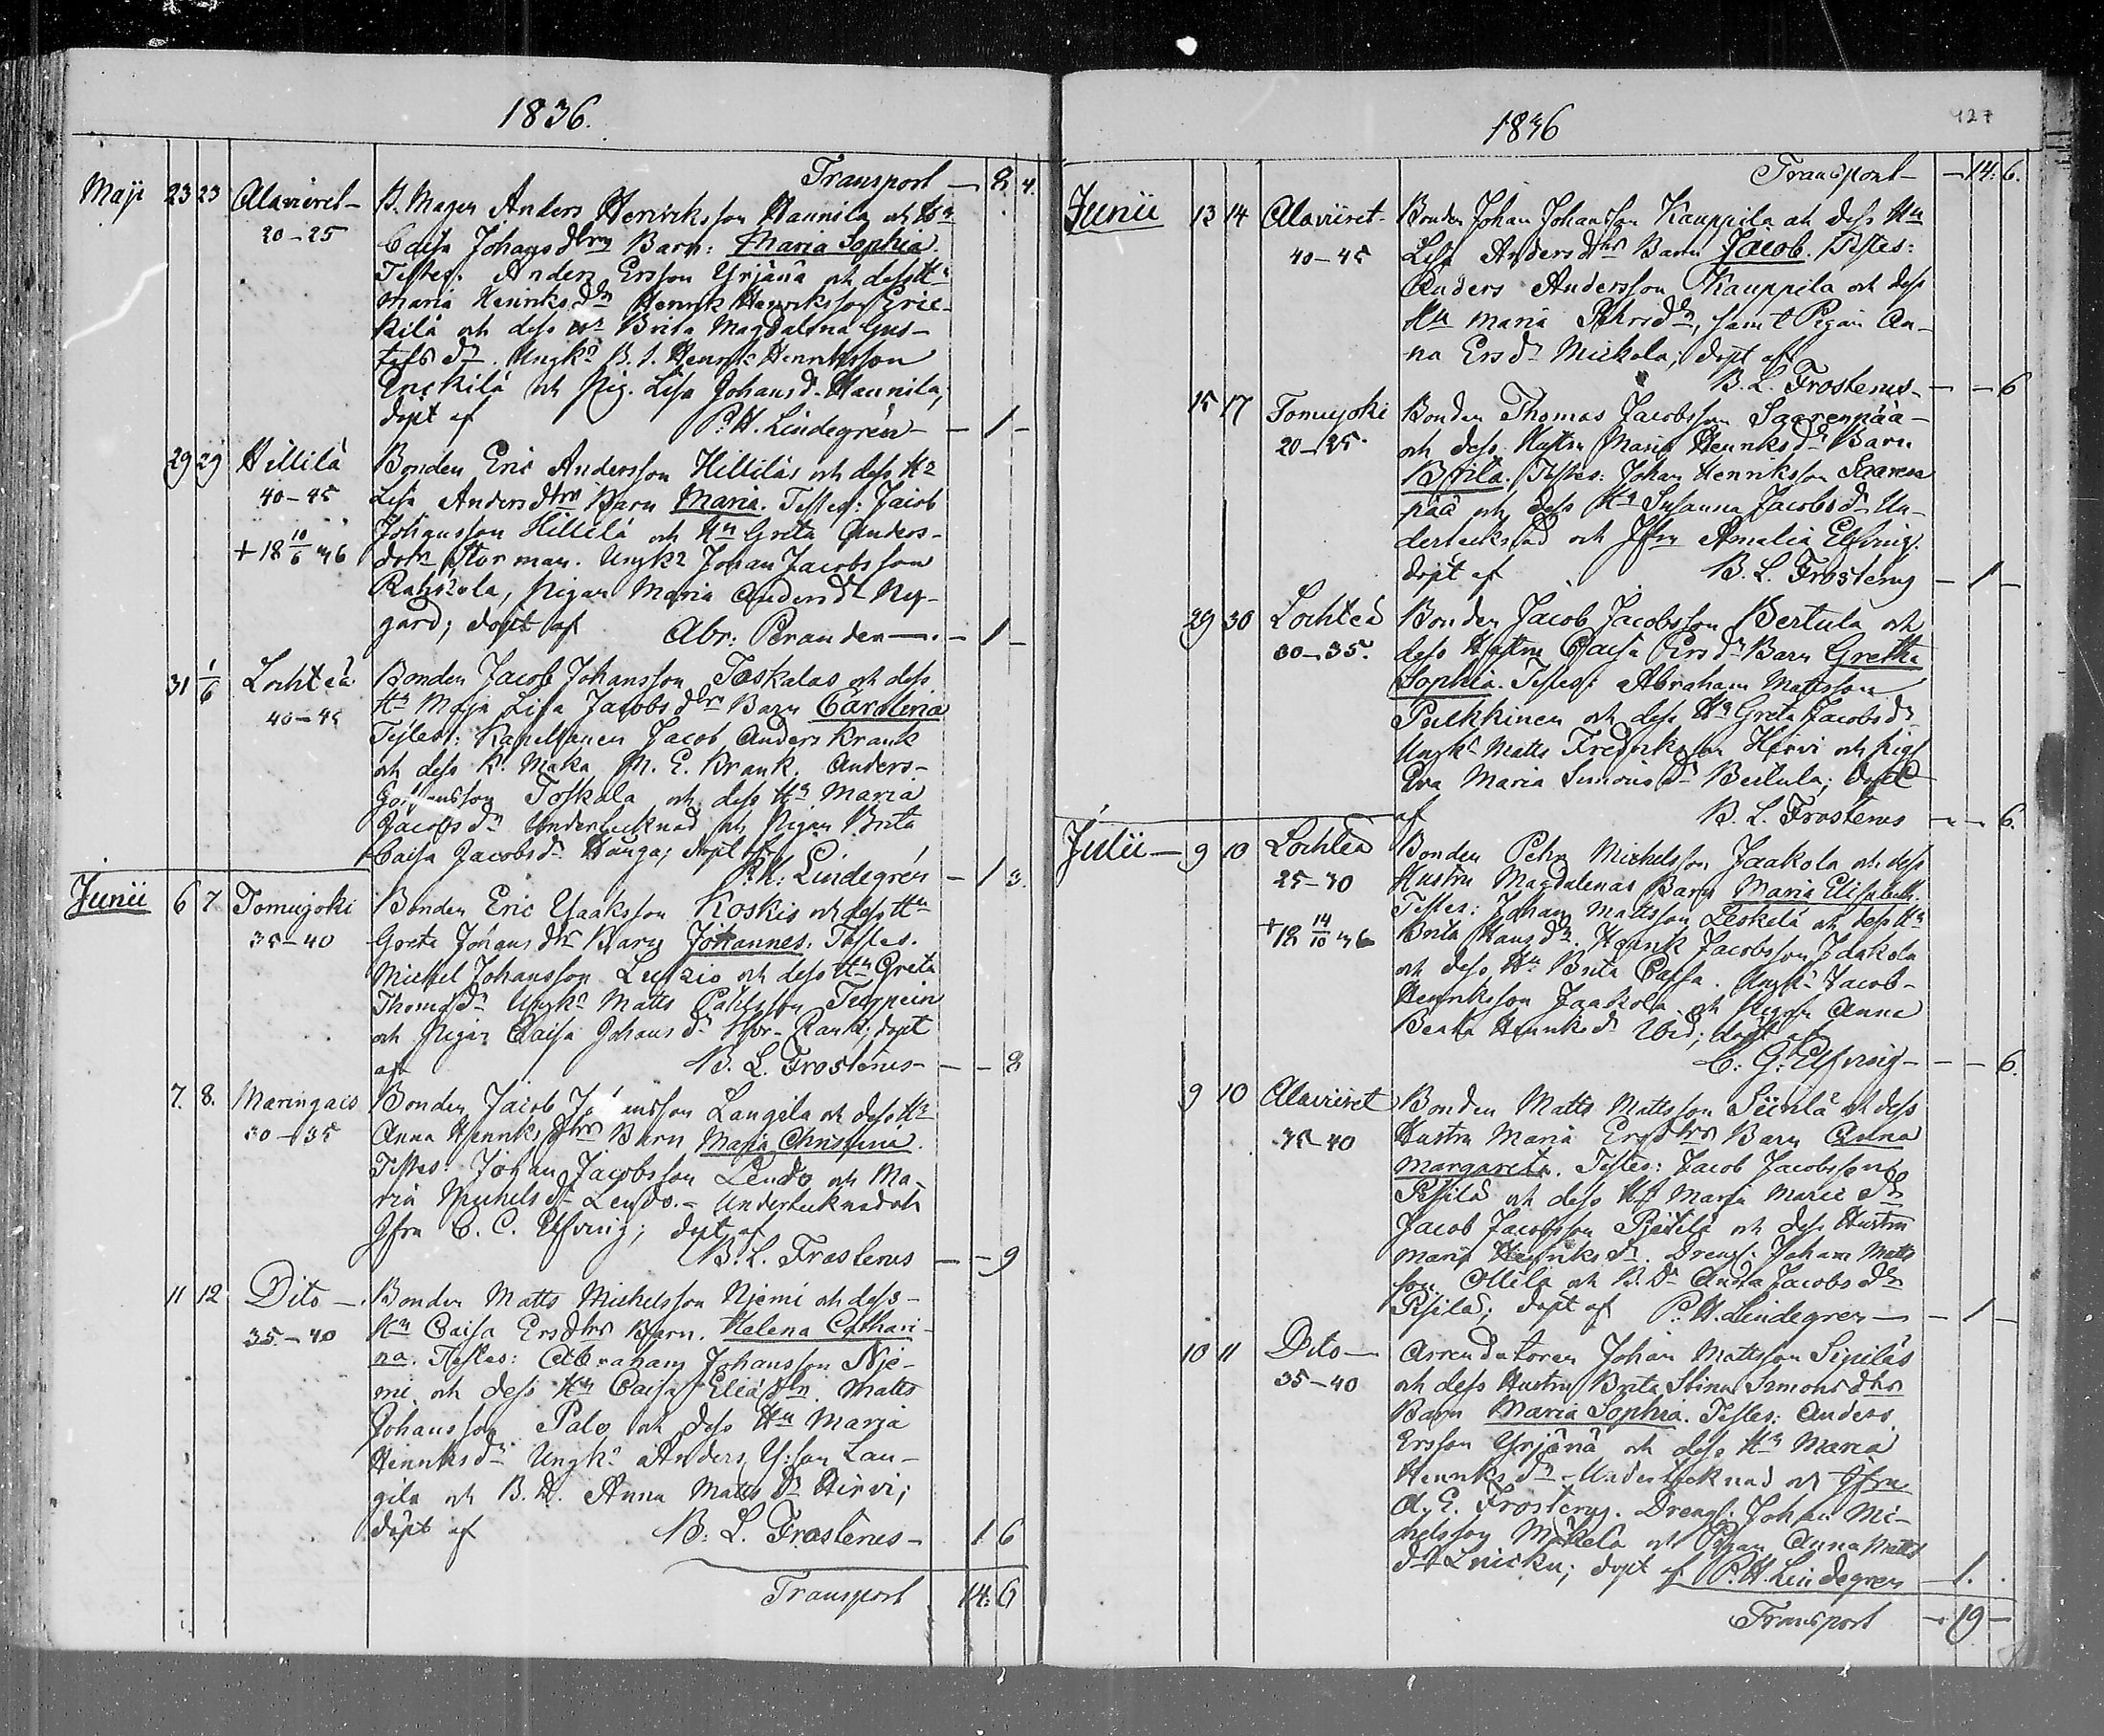 1836.
Transport — 8 4.
Maji 23 23 Alaviiret B. Mågen Anders Henriksson Hannila och Hu
20–25 Caisa Johansdtrs Barn: Maria Sophia.
Testes: Anders Ersson Yrjänä och dess Hu
Maria Henriksdr Henrik Henriksson Eric-
kilä och dess Hu Brita Magdalena Gus-
tafsdr. Ungkn B. S. Henrik Henriksson
Erickilä och Pig. Lisa Johansd. Hannila,
döpt af P. H. Lindegrén — 1 —
29 29 Hillilä Bonden Eric Andersson Hilliläs och dess Hu
40–45 Lisa Andersdtrs Barn Maria. Testes: Jacob
Johansson Hillilä och Hu Greta Anders-
+ 18 10/6 36 dotr Storman. Ungkn Johan Jacobsson
Rahkola, Pigan Maria Andersdr Ny-
gård; döpt af Abr. Perander — 1 —
31 1/6 Lochteå Bonden Jacob Johansson Toskalas och dess
40–45 Hu Maja Lisa Jacobsdtrs Barn Carolina
Testes: Kapellanen Jacob Anders Krank
och dess K. Maka M. E. Krank. Anders
Johansson Toskala och dess Hu Maria
Jacobsdr Undertecknad och Pigan Brita
Caisa Jacobsdr Hanga; döpt af
P. H. Lindegrén — 1 3.
Junii 6 7 Tomujoki Bonden Eric Isaksson Koskis och dess Hu
35–40 Greta Johansdtrs Barn Johannes. Testes.
Michel Johansson och dess Hu Greta
Thomasdr Ungkn Matts Påhlsson
och Pigan Caisa Johansdr döpt
af B. L. Frosterus — — 8
7. 8. Maringais Bonden Jacob Johansson Langila och dess Hu
30–35 Anna Henriksdtrs Barn Maria Christina.
Testes: Johan Jacobsson Lendo och Ma-
ria Michelsdr Lendo. – Undertecknad och
Jfru C. C. Elfving; döpt af
B. L. Frosterus — — 9
11 12 Dito — Bonden Matts Michelsson Niemi och dess
35–40 Hu Caisa Ersdtrs Barn. Helena Cathari-
na. Testes: Abraham Johansson Nie-
mi och dess Hu Caisa Eliædtr. Matts
Johansson Palo och dess Hu Maria
Henriksdr Ungkn Anders Y:son Lan-
gila och B. D. Anna Mattsdr Hirvi;
döpt af B. L. Frosterus — 1 6
Transport 14: 6
1836
127
Transport — 14: 6.
Junii 13 14 Alaviiret Bonden Johan Johansson Kauppila och dess Hu
40–45 Lisa Andersdtrs Barn Jacob. Testes:
Anders Andersson Kauppila och dess
Hu Maria Pehrsdr, samt Pigan An-
na Ersdr Mickola; döpt af
B. L. Frosterus — — 6
15 17 Tomujoki Bonden Thomas Jacobsson Saarenpää
20–25. och dess Hustru Maria Henriksdr Barn
Brita. Testes: Johan Henriksson Saaren
pää och dess Hu Susanna Jacobsdr Un-
dertecknad och Jfru Amalia Elfving.
döpt af B. L. Frosterus — 1 —
29 30 Lochteå Bonden Jacob Jacobsson Bertula och
30–35. dess Hustru Caisa Ersdr Barn Gretha
Sophia. Testes: Abraham Mattsson
Pulkkinen och dess Hu Greta Jacobsdr
Ungkn Matts Fredriksson Hirvi och Pig.
Eva Maria Simonsdr Bertula; döpt
af B. L. Frosterus — — 6.
Julii — 9 10 Lochteå Bonden Pehr Michelsson Jaakola och dess
25–30 Hustru Magdalenas Barn Maria Elisabeth.
Testes: Johan Mattsson Leskelä och dess Hu
+ 18 14/10 36 Brita Hansdr. Henrik Jacobsson Jaakola
och dess Hu Brita Caisa. Ungkn Jacob
Henriksson Jaakola och Pigan Anna
Beata Henriksdr döpt af
C. G. Elfving — — 6.
9 10 Alaviiret Bonden Matts Mattsson Siirilä och dess
35–40 Hustru Maria Ersdtrs Barn Anna
Margareta. Testes: Jacob Jacobsson
och dess Hu Maria
Jacob Jacobsson och dess Hustru
Maria Henriksdr. Dreng. Johan Matts
son Ollila och B. Dr Anna Jacobsdr
döpt af P. H. Lindegren — 1 —
10 11 Dito — Arrendatoren Johan Mattsson Sipiläs
35–40 och dess Hustru Brita Stina Simonsdtrs
Barn Maria Sophia. Testes: Anders
Ersson Yrjänä och dess Hu Maria
Henriksdr – Undertecknad och Jfru
A. E. Frosterus. Dreng. Johan Mi-
chelsson Mäkelä och Pigan Anna Matts
dr döpt af P. H. Lindegren — 1.
Transport — 19 —